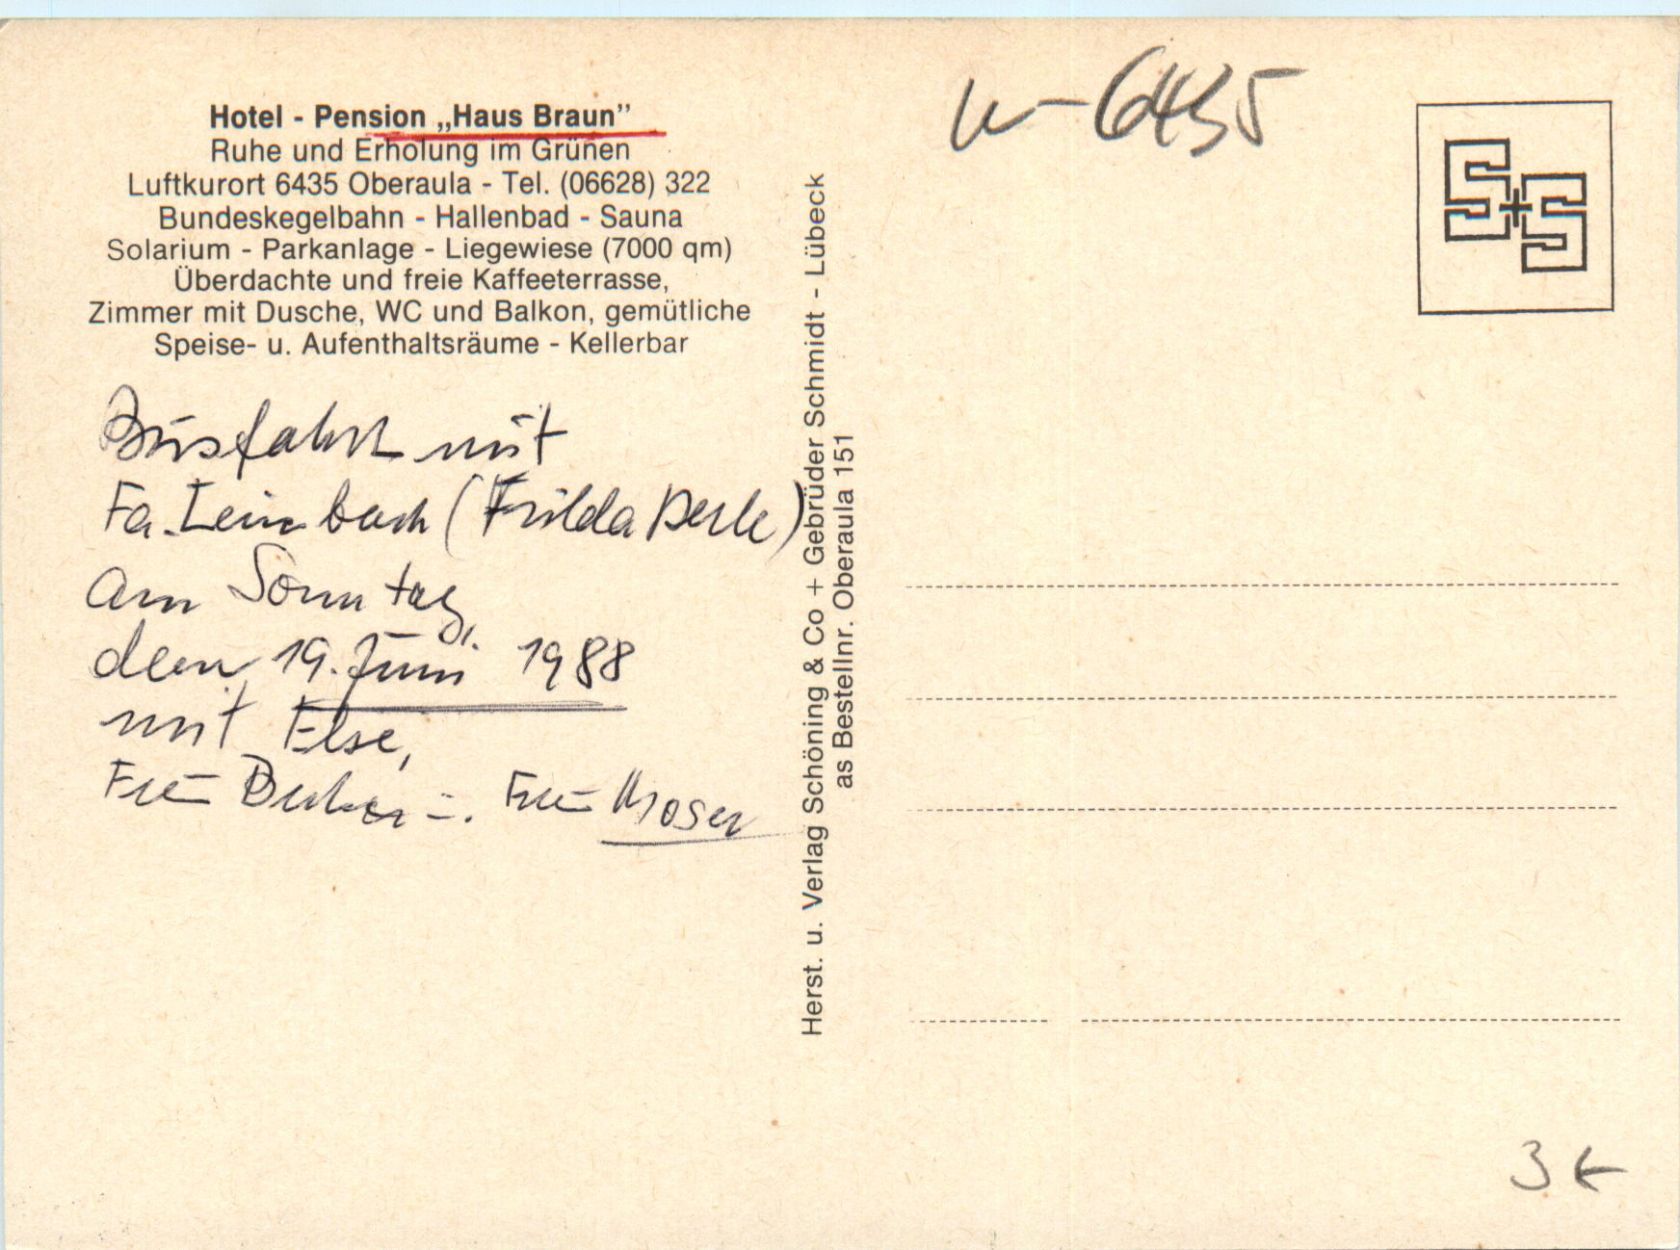 Hotel - Pension „Haus Braun”
Ruhe und Erholung im Grünen
Luftkurort 6435 Oberaula - Tel. (06628) 322
Bundeskegelbahn - Hallenbad - Sauna
Solarium - Parkanlage - Liegewiese (7000 qm)
Überdachte und freie Kaffeeterrasse,
Zimmer mit Dusche, WC und Balkon, gemütliche
Speise- u. Aufenthaltsräume - Kellerbar
Busfahrt mit
Fa. Leimbach (Frilda
am Sonntag,
den 19. Juni 1988
mit Else,
Frau Becker u. Frau Moser
Herst. u. Verlag Schöning & Co + Gebrüder Schmidt - Lübeck
as Bestellnr. Oberaula 151
W-6435
S+S
3 €